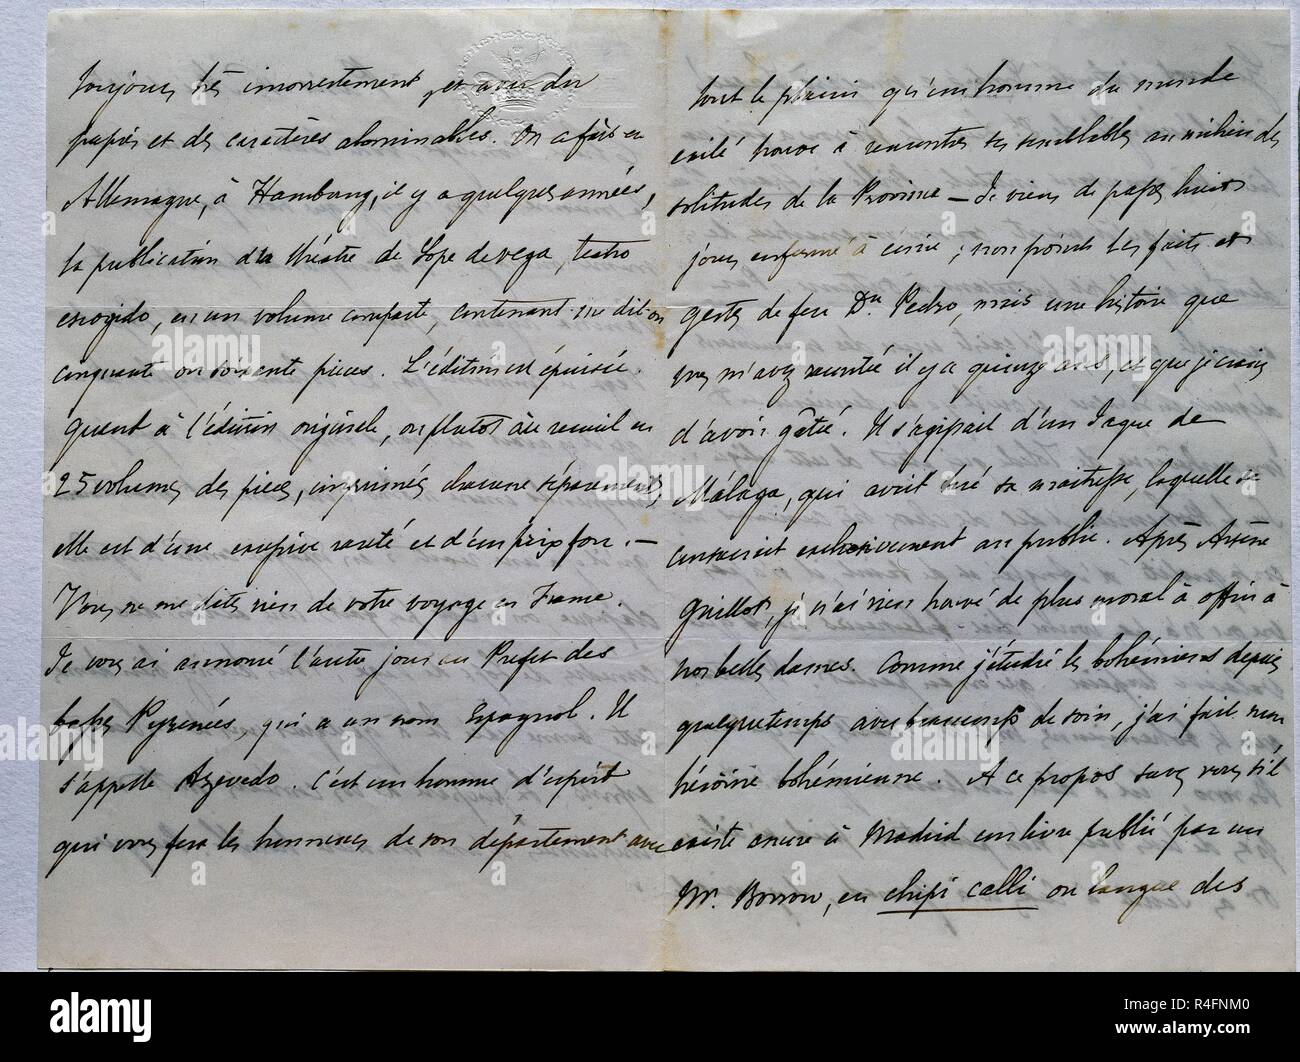 toujours très incorrectement, et avec du
papier et des caractères abominables. On a fait en
Allemagne, à Hambourg, il y a quelques années,
la publication du théâtre de Lope de vega, teatro
escogido, en un volume compacte, contenant me dit on
cinquante ou soixante pieces. L'édition est épuisée.
Quant à l'édition originale, ou plutot au recueil en
25 volumes de pieces, imprimées chacune séparement,
elle est d'une excessive rareté et d'un prix fou. —
Vous ne me dites rien de votre voyage en France.
Je vous ai annoncé l'autre jour au Prefet des
basses Pyrenées, qui a un nom Espagnol. Il
s'appelle Azevedo. C'est un homme d'esprit
qui vous fera les honneurs de son département avec
tout le plaisir qu'un homme du monde
exilé trouve à rencontrer ses semblables au milieu des
solitudes de la Province — Je viens de passer huit
jours enfermé à écrire ; non point les faits et
gestes de feu Dn. Pedro, mais une histoire que
vous m'avez racontée il y a quinze ans, et que je crains
d'avoir gâtée. Il s'agissait d'un Jaque de
Málaga, qui avait tué sa maitresse, laquelle se
consacrait exclusivement au public. Après Arsène
Guillot, je n'ai rien trouvé de plus moral à offrir à
nos belles dames. Comme j'étudie les bohémiens depuis
quelque temps avec beaucoup de soin, j'ai fait mon
héroine bohémienne. A ce propos savez vous s'il
existe encore à Madrid un livre publié par un
Mr. Borrow, en chipi calli ou langue des
alamy
alamy
Image ID: R4FNM0
www.alamy.com